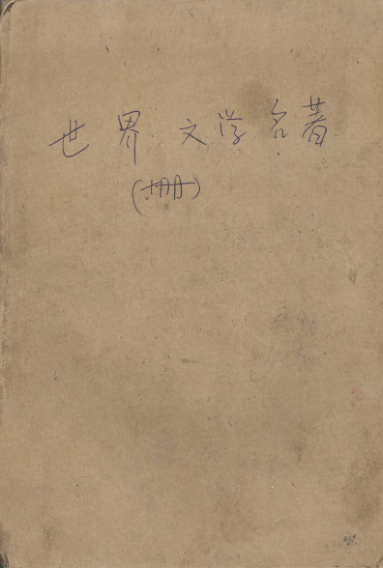 世界文学名著
(册)